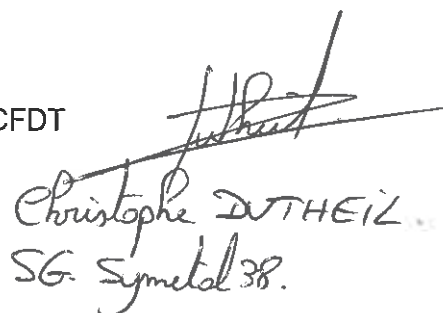 CFDT
Christophe DUTHEIL.
SG. Symetal 38.